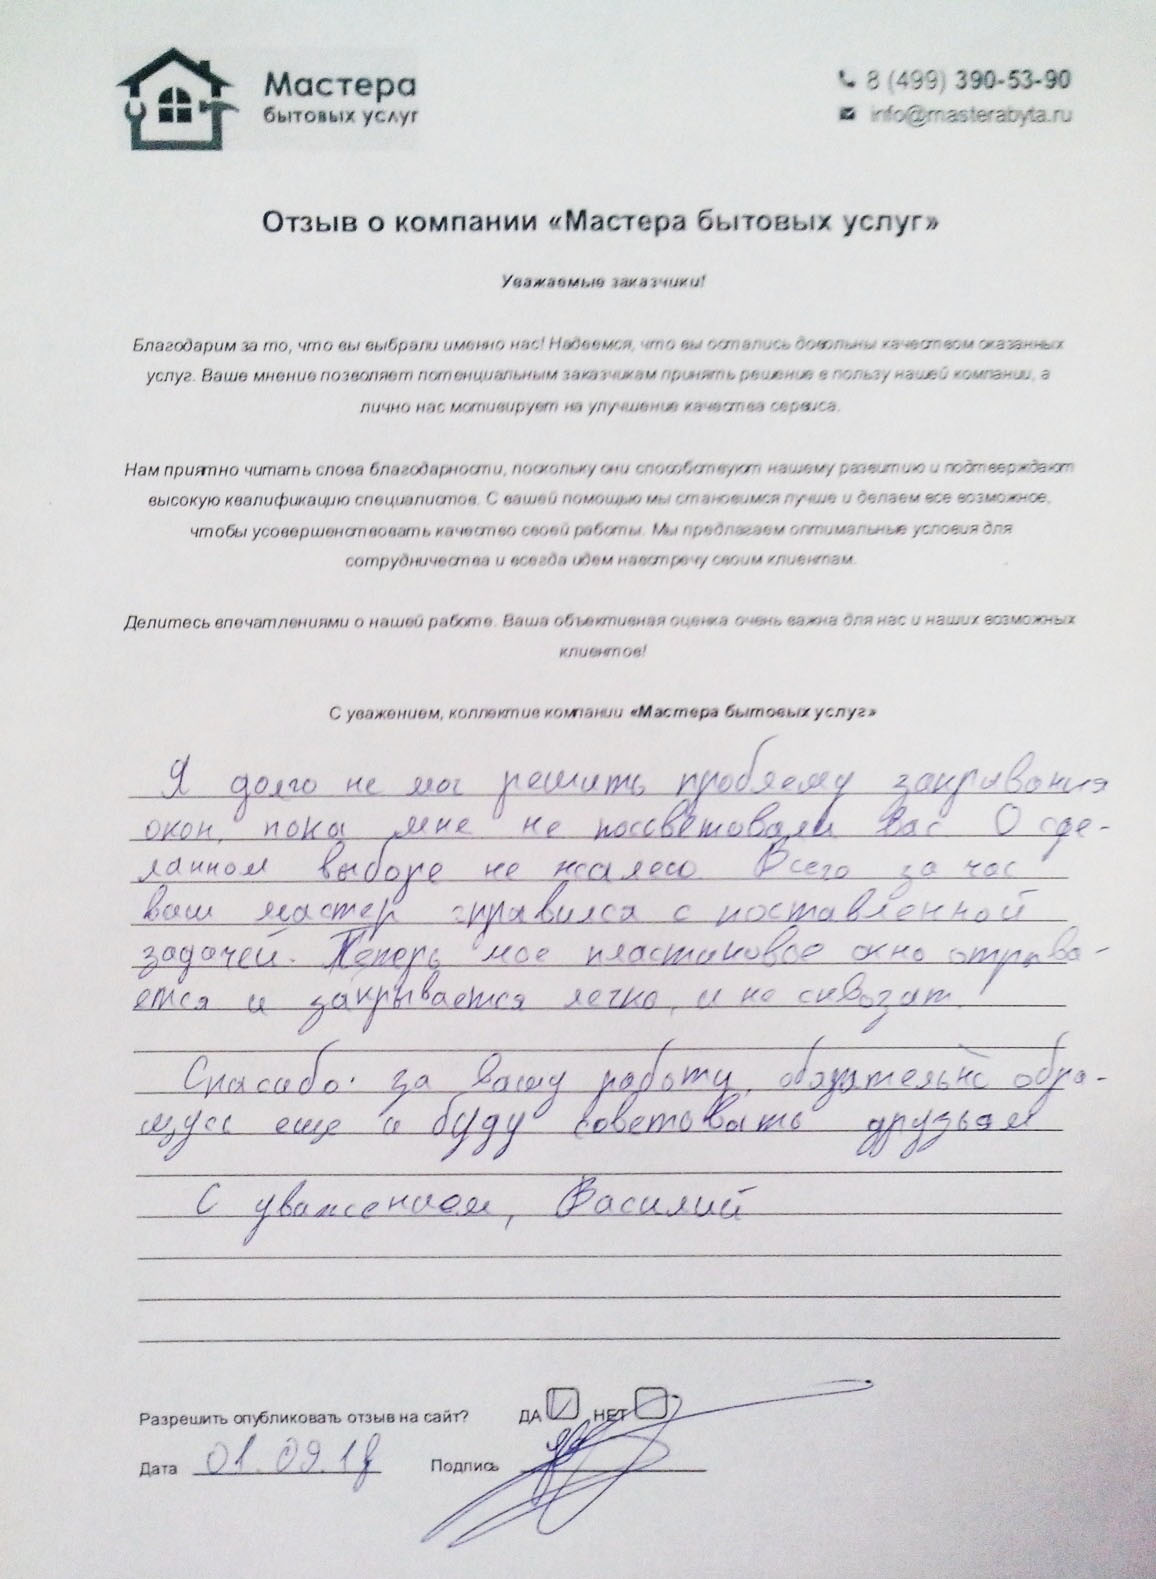 Мастера
бытовых услуг
8 (499) 390-53-90
info@masterabyta.ru
Отзыв о компании «Мастера бытовых услуг»
Уважаемые заказчики!
Благодарим за то, что вы выбрали именно нас! Надеемся, что вы остались довольны качеством оказанных
услуг. Ваше мнение позволяет потенциальным заказчикам принять решение в пользу нашей компании, а
лично нас мотивирует на улучшение качества сервиса.
Нам приятно читать слова благодарности, поскольку они способствуют нашему развитию и подтверждают
высокую квалификацию специалистов. С вашей помощью мы становимся лучше и делаем все возможное,
чтобы усовершенствовать качество своей работы. Мы предлагаем оптимальные условия для
сотрудничества и всегда идем навстречу своим клиентам.
Делитесь впечатлениями о нашей работе. Ваша объективная оценка очень важна для нас и наших возможных
клиентов!
С уважением, коллектив компании «Мастера бытовых услуг»
Я долго не мог решить проблему закрывания
окон, пока мне не посоветовали вас О сде-
ланном выборе не жалею. Всего за час
ваш мастер справился с поставленной
задачей. Теперь мое пластиковое окно открыва-
ется и закрывается легко, и не сквозит.
Спасибо за вашу работу, обязательно обра-
щусь еще и буду советовать друзьям
С уважением, Василий
Разрешить опубликовать отзыв на сайт? ДА НЕТ
Дата 01.09.18 Подпись